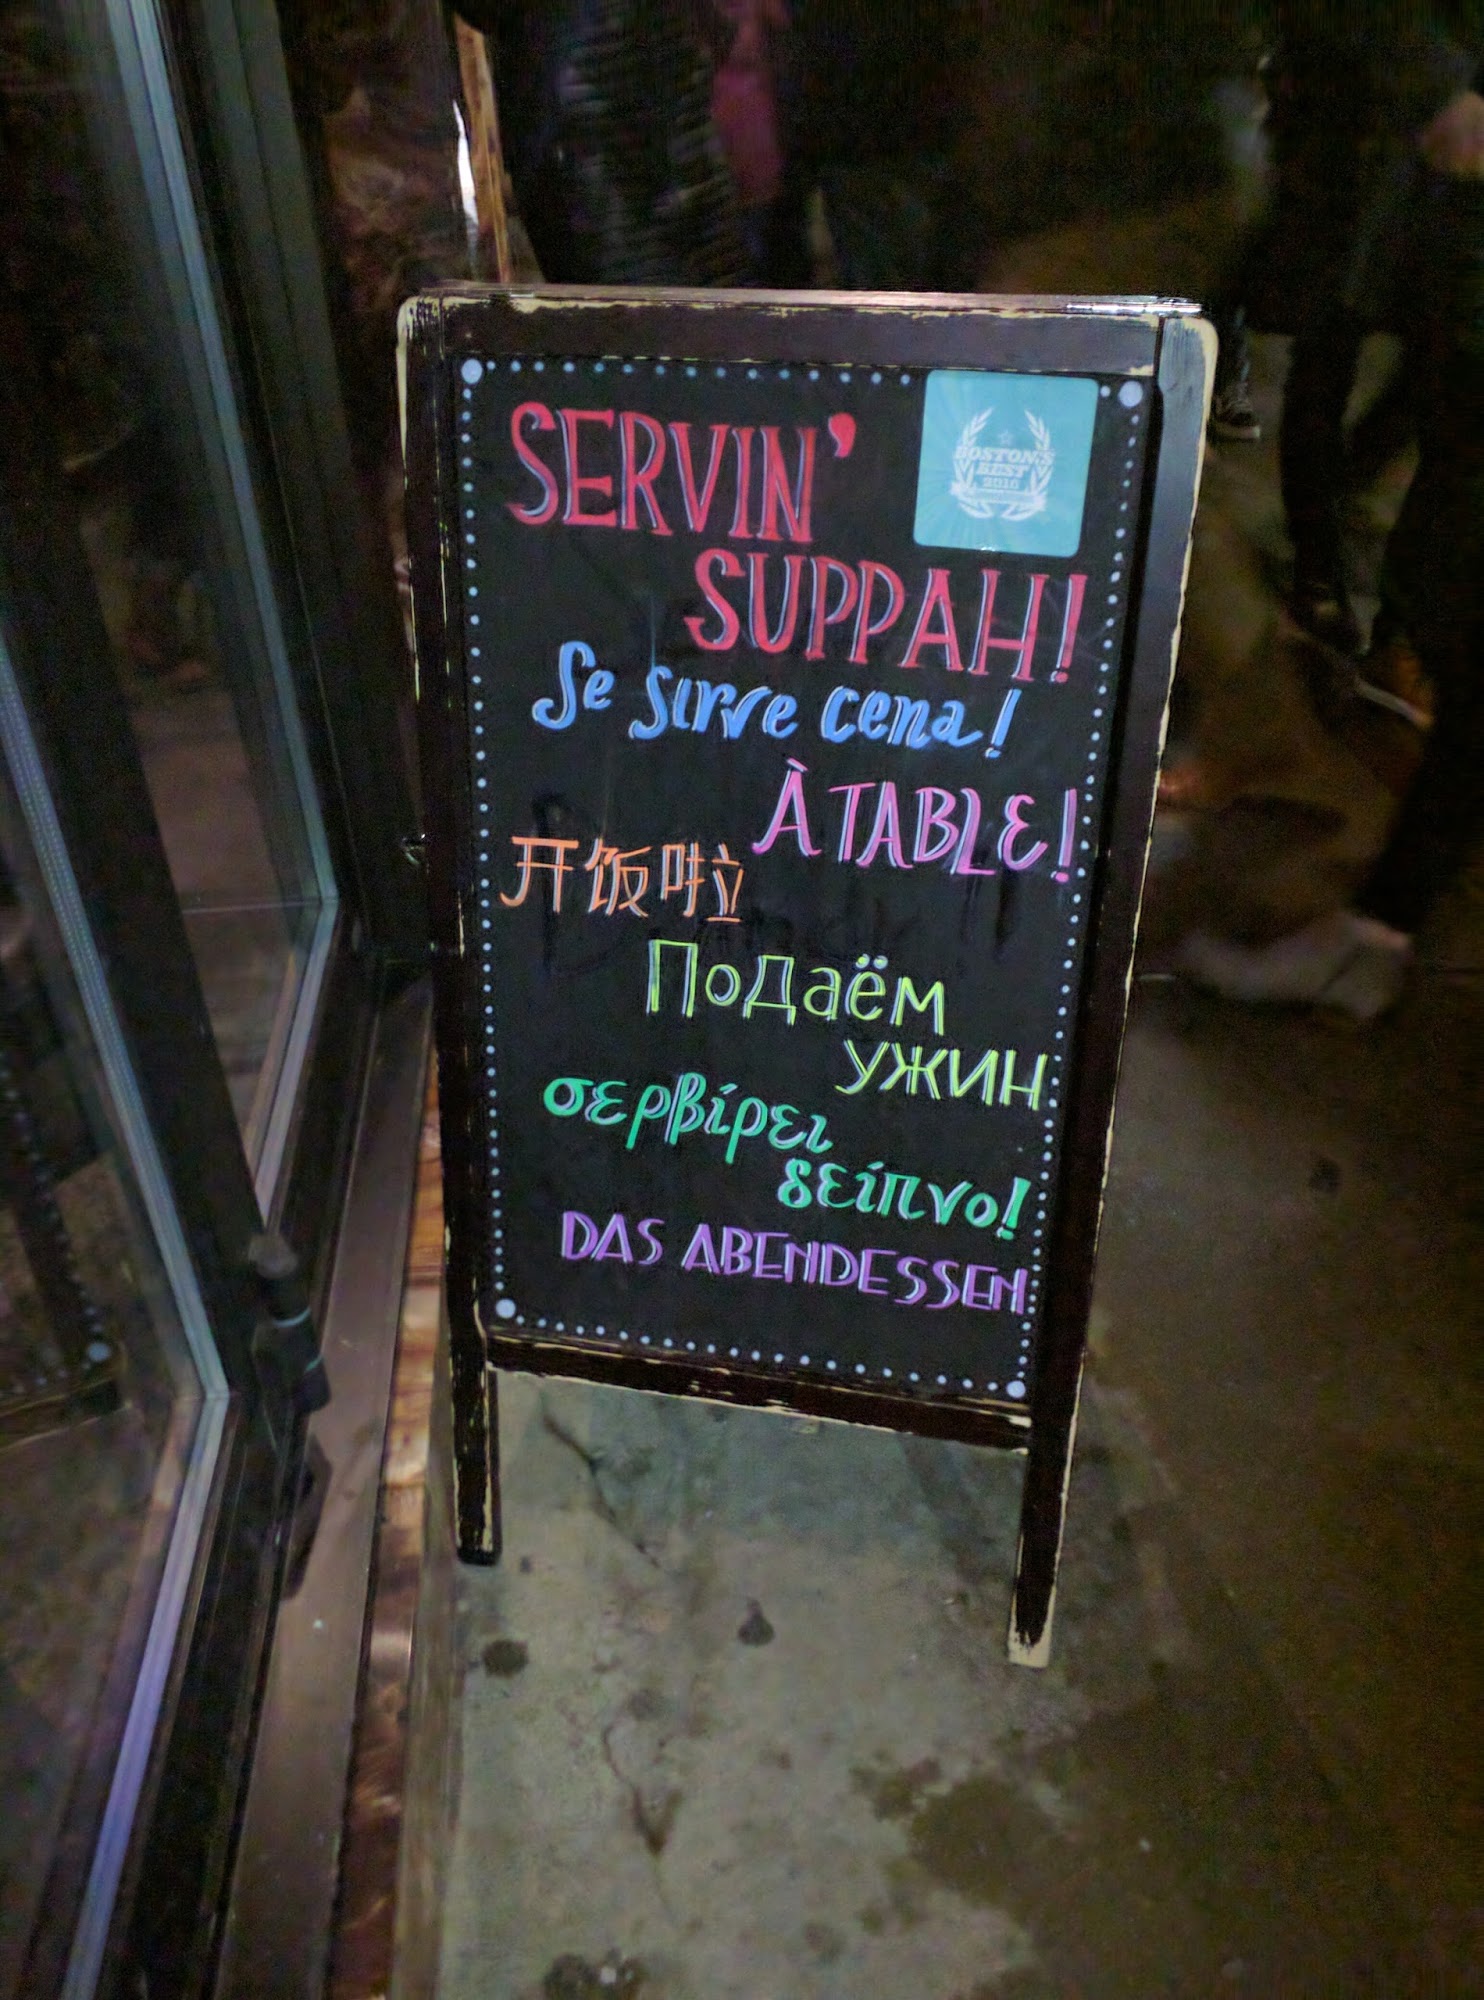 SERVIN'
BOSTON'S
BEST
2016
SUPPAH!
Se sirve cena!
À TABLE!
开饭啦
Подаём
ужин
σερβίρει
δείπνο!
DAS ABENDESSEN